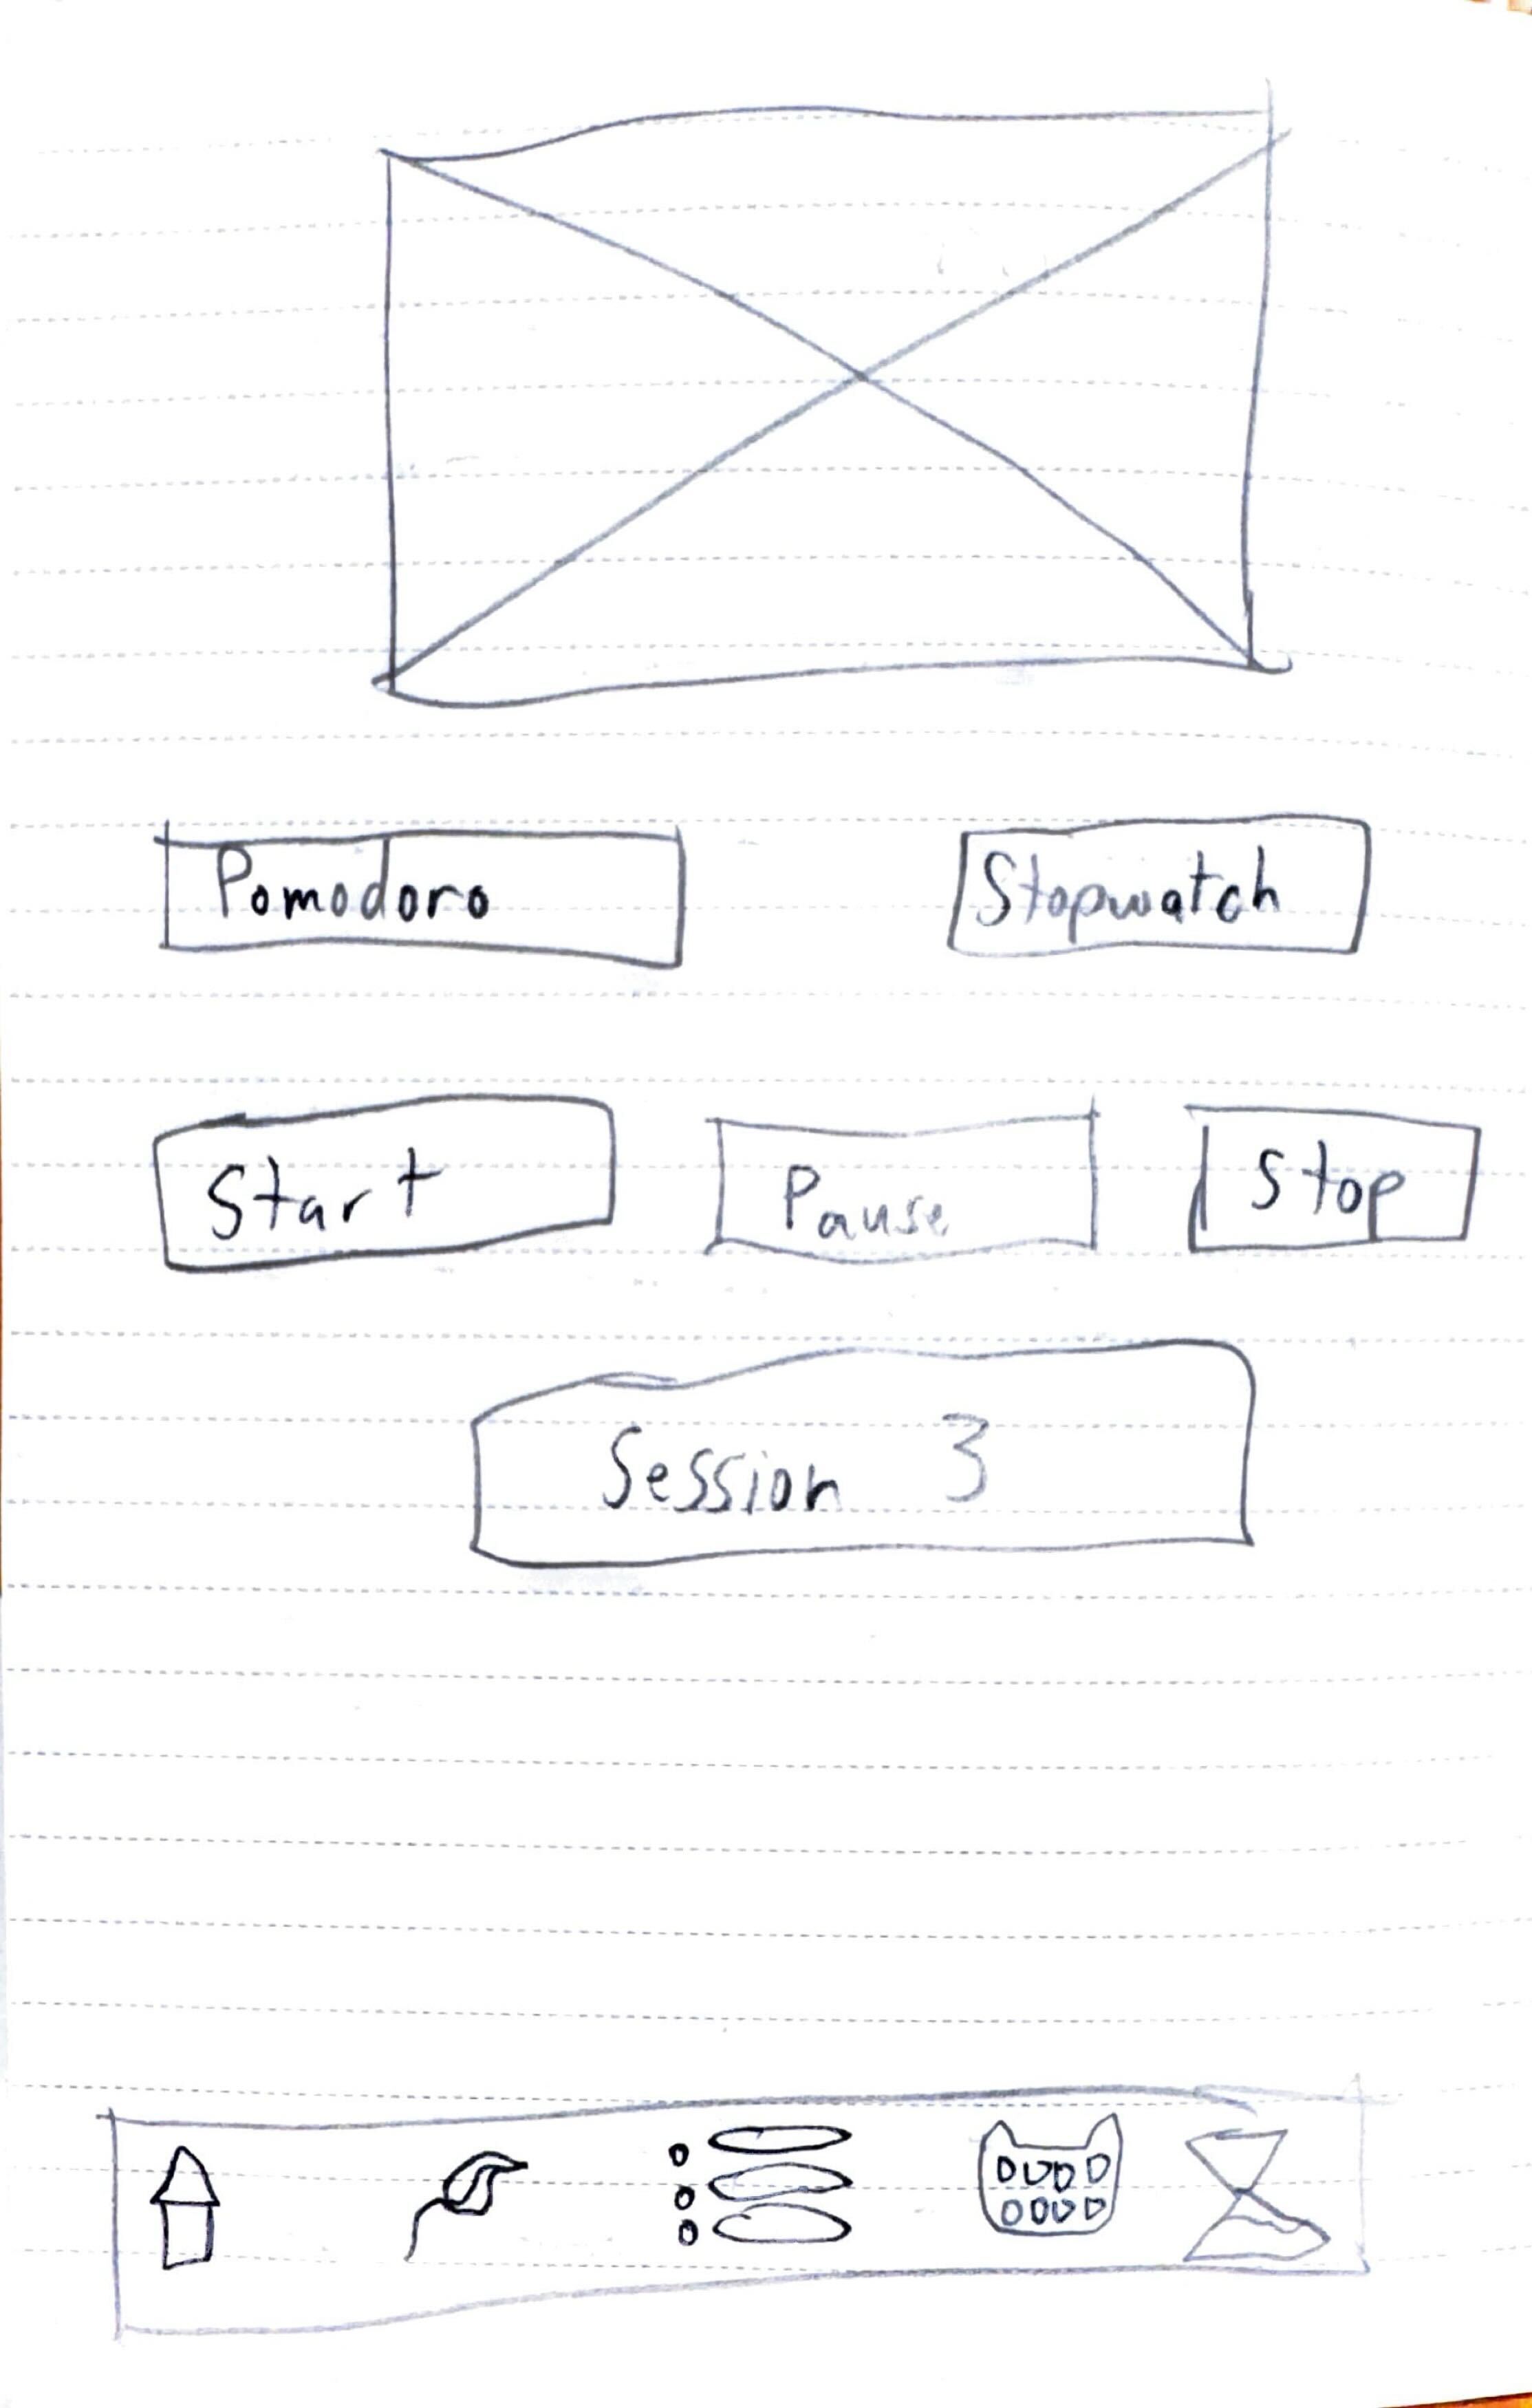 Pomodoro Stopwatch
Start Pause Stop
Session 3